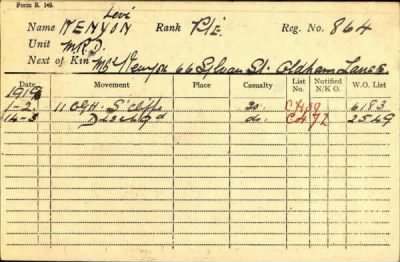 Form R. 149.
Levi
Name KENYON Rank Pte. Reg. No. 864
Unit M.R.D.
Next of Kin Mrs Kenyon 66 Sylvan St. Oldham Lancs.
Date Movement Place Casualty List No. Notified N/K O. W.O. List
1919
1-2. 11 CGH. S'cliffe 20 CH89 6183
14-3 Dischgd do. C472 2549